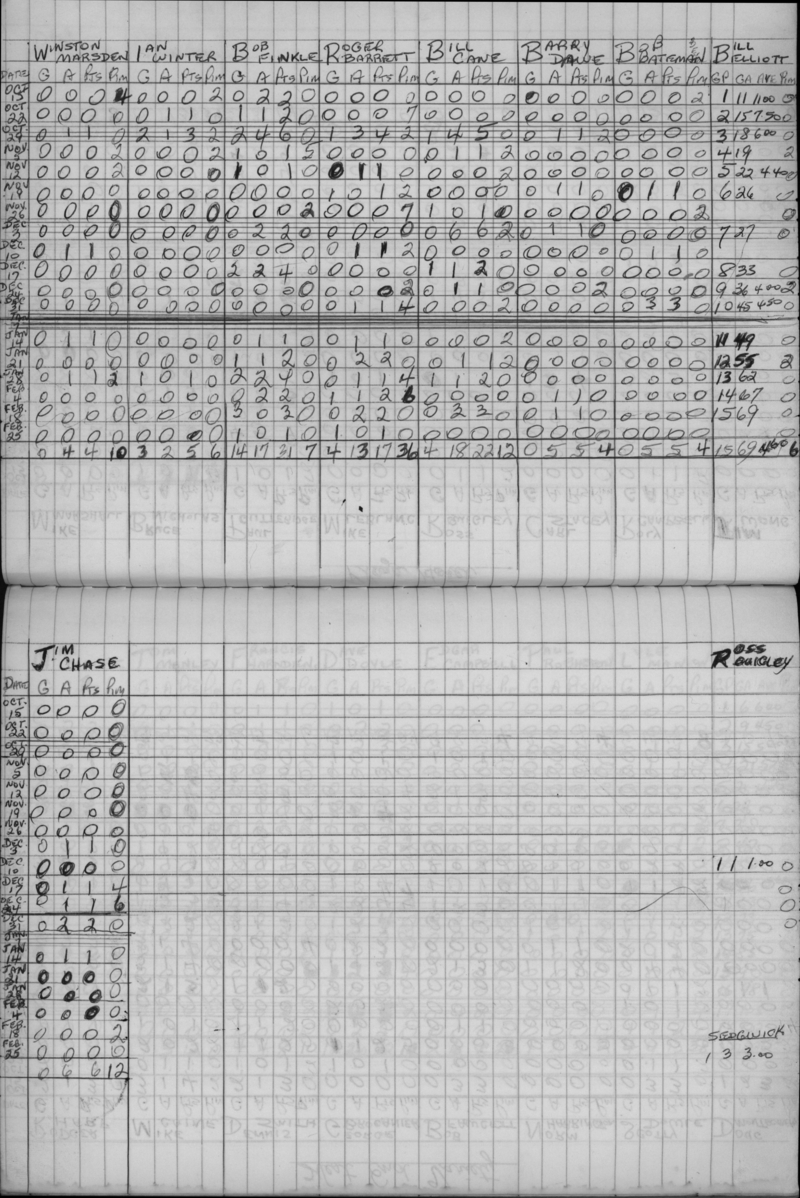 WINSTON MARSDEN IAN WINTER BOB FINKLE ROGER BARRETT BILL CANE BARRY DAWE BOB BATEMAN BILL ELLIOTT
DATE G A Pts Pim G A Pts Pim G A Pts Pim G A Pts Pim G A Pts Pim G A Pts Pim G A Pts Pim GP GA AVE Pim
OCT 15 0 0 0 4 0 0 0 2 0 2 2 0 0 0 0 0 0 0 0 0 0 0 0 0 0 0 0 2 1 11 11.00 0
OCT 22 0 0 0 0 0 1 1 0 1 1 2 0 0 0 0 7 0 0 0 0 0 0 0 0 0 0 0 0 2 15 7.50 0
OCT 29 0 1 1 0 2 1 3 2 2 4 6 0 1 3 4 2 1 4 5 0 0 1 1 2 0 0 0 0 3 18 6.00 0
NOV 5 0 0 0 2 0 0 0 2 1 0 1 5 0 0 0 0 0 1 1 2 0 0 0 0 0 0 0 0 4 19 2
NOV 12 0 0 0 2 0 0 0 0 1 0 1 0 0 1 1 0 0 0 0 2 0 0 0 0 0 0 0 0 5 22 4.40 0
NOV 19 0 0 0 0 0 0 0 0 0 0 0 0 1 0 1 2 0 0 0 0 0 1 1 0 0 1 1 0 6 26 0
NOV 26 0 0 0 0 0 0 0 0 0 0 0 2 0 0 0 7 1 0 1 0 0 0 0 0 0 0 0 2 0
DEC 3 0 0 0 0 0 0 0 0 0 2 2 0 0 0 0 0 0 6 6 2 0 1 1 0 0 0 0 0 7 27 0
DEC 10 0 1 1 0 0 0 0 0 0 0 0 0 0 1 1 2 0 0 0 0 0 0 0 0 0 1 1 0
DEC. 17 0 0 0 0 0 0 0 0 2 2 4 0 0 0 0 0 1 1 2 0 0 0 0 0 0 0 0 0 8 33 0
DEC 24 0 0 0 0 0 0 0 0 0 0 0 0 0 0 0 2 0 1 1 0 0 0 0 2 0 0 0 0 9 36 4.00 2
DEC 31 0 0 0 0 0 0 0 0 0 0 0 0 0 1 1 4 0 0 0 2 0 0 0 0 0 3 3 0 10 45 4.50 0
JAN
JAN 14 0 1 1 0 0 0 0 0 0 1 1 0 0 1 1 0 0 0 0 2 0 0 0 0 0 0 0 0 11 49 0
JAN 21 0 0 0 0 0 0 0 0 1 1 2 0 0 2 2 0 0 1 1 2 0 0 0 0 0 0 0 0 12 55 2
JAN 28 0 1 1 2 1 0 1 0 2 2 4 0 0 1 1 4 1 1 2 0 0 0 0 0 0 0 0 0 13 62 0
FEB 4 0 0 0 0 0 0 0 0 0 2 2 0 1 1 2 6 0 0 0 0 0 1 1 0 0 0 0 0 14 67 0
FEB. 18 0 0 0 0 0 0 0 0 3 0 3 0 0 2 2 0 0 3 3 0 0 1 1 0 0 0 0 0 15 69 0
FEB. 25 0 0 0 0 0 0 0 0 1 0 1 0 1 0 1 0 0 0 0 0 0 0 0 0 0 0 0 0
0 4 4 10 3 2 5 6 14 17 31 7 4 13 17 36 4 18 22 12 0 5 5 4 0 5 5 4 15 69 4.60 6
JIM CHASE ROSS QUIGLEY
DATE G A Pts Pim
OCT. 15 0 0 0 0
OCT. 22 0 0 0 0
OCT 29 0 0 0 0
NOV 5 0 0 0 0
NOV 12 0 0 0 0
NOV 19 0 0 0 0
NOV. 26 0 0 0 0
DEC 3 0 1 1 0
DEC. 10 0 0 0 0 1 1 1.00 0
DEC 17 0 1 1 4 0
DEC. 24 0 1 1 6 0
DEC 31 0 2 2 0 0
JAN
JAN 14 0 1 1 0
JAN 21 0 0 0 0
JAN 28 0 0 0 0
FEB. 4 0 0 0 0
FEB. 18 0 0 0 2 SEDGWICK
FEB. 25 0 0 0 0 1 3 3.00
0 6 6 12